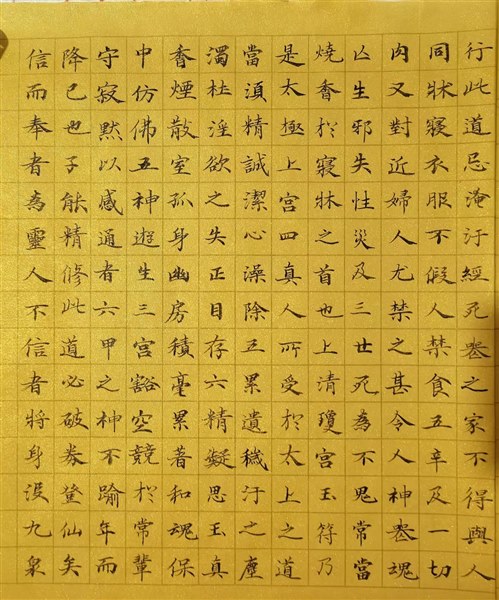 行此道忌淹汙經死喪之家不得與人
同牀寢衣服不假人禁食五辛及一切
肉又對近婦人尤禁之甚令人神喪魂
亾生邪失性災及三世死為不鬼常當
燒香扵寢牀之首也上清瓊宮玉符乃
是太極上宮四真人所受扵太上之道
當湏精誠潔心澡除五累遺穢汙之塵
濁杜淫欲之失正目存六精凝思玉真
香煙散室孤身幽房積毫累著和魂保
中仿佛五神遊生三宮豁空競扵常輩
守寂默以感通者六甲之神不踰年而
降已也子能精修此道必破券登仙矣
信而奉者為靈人不信者將身沒九泉